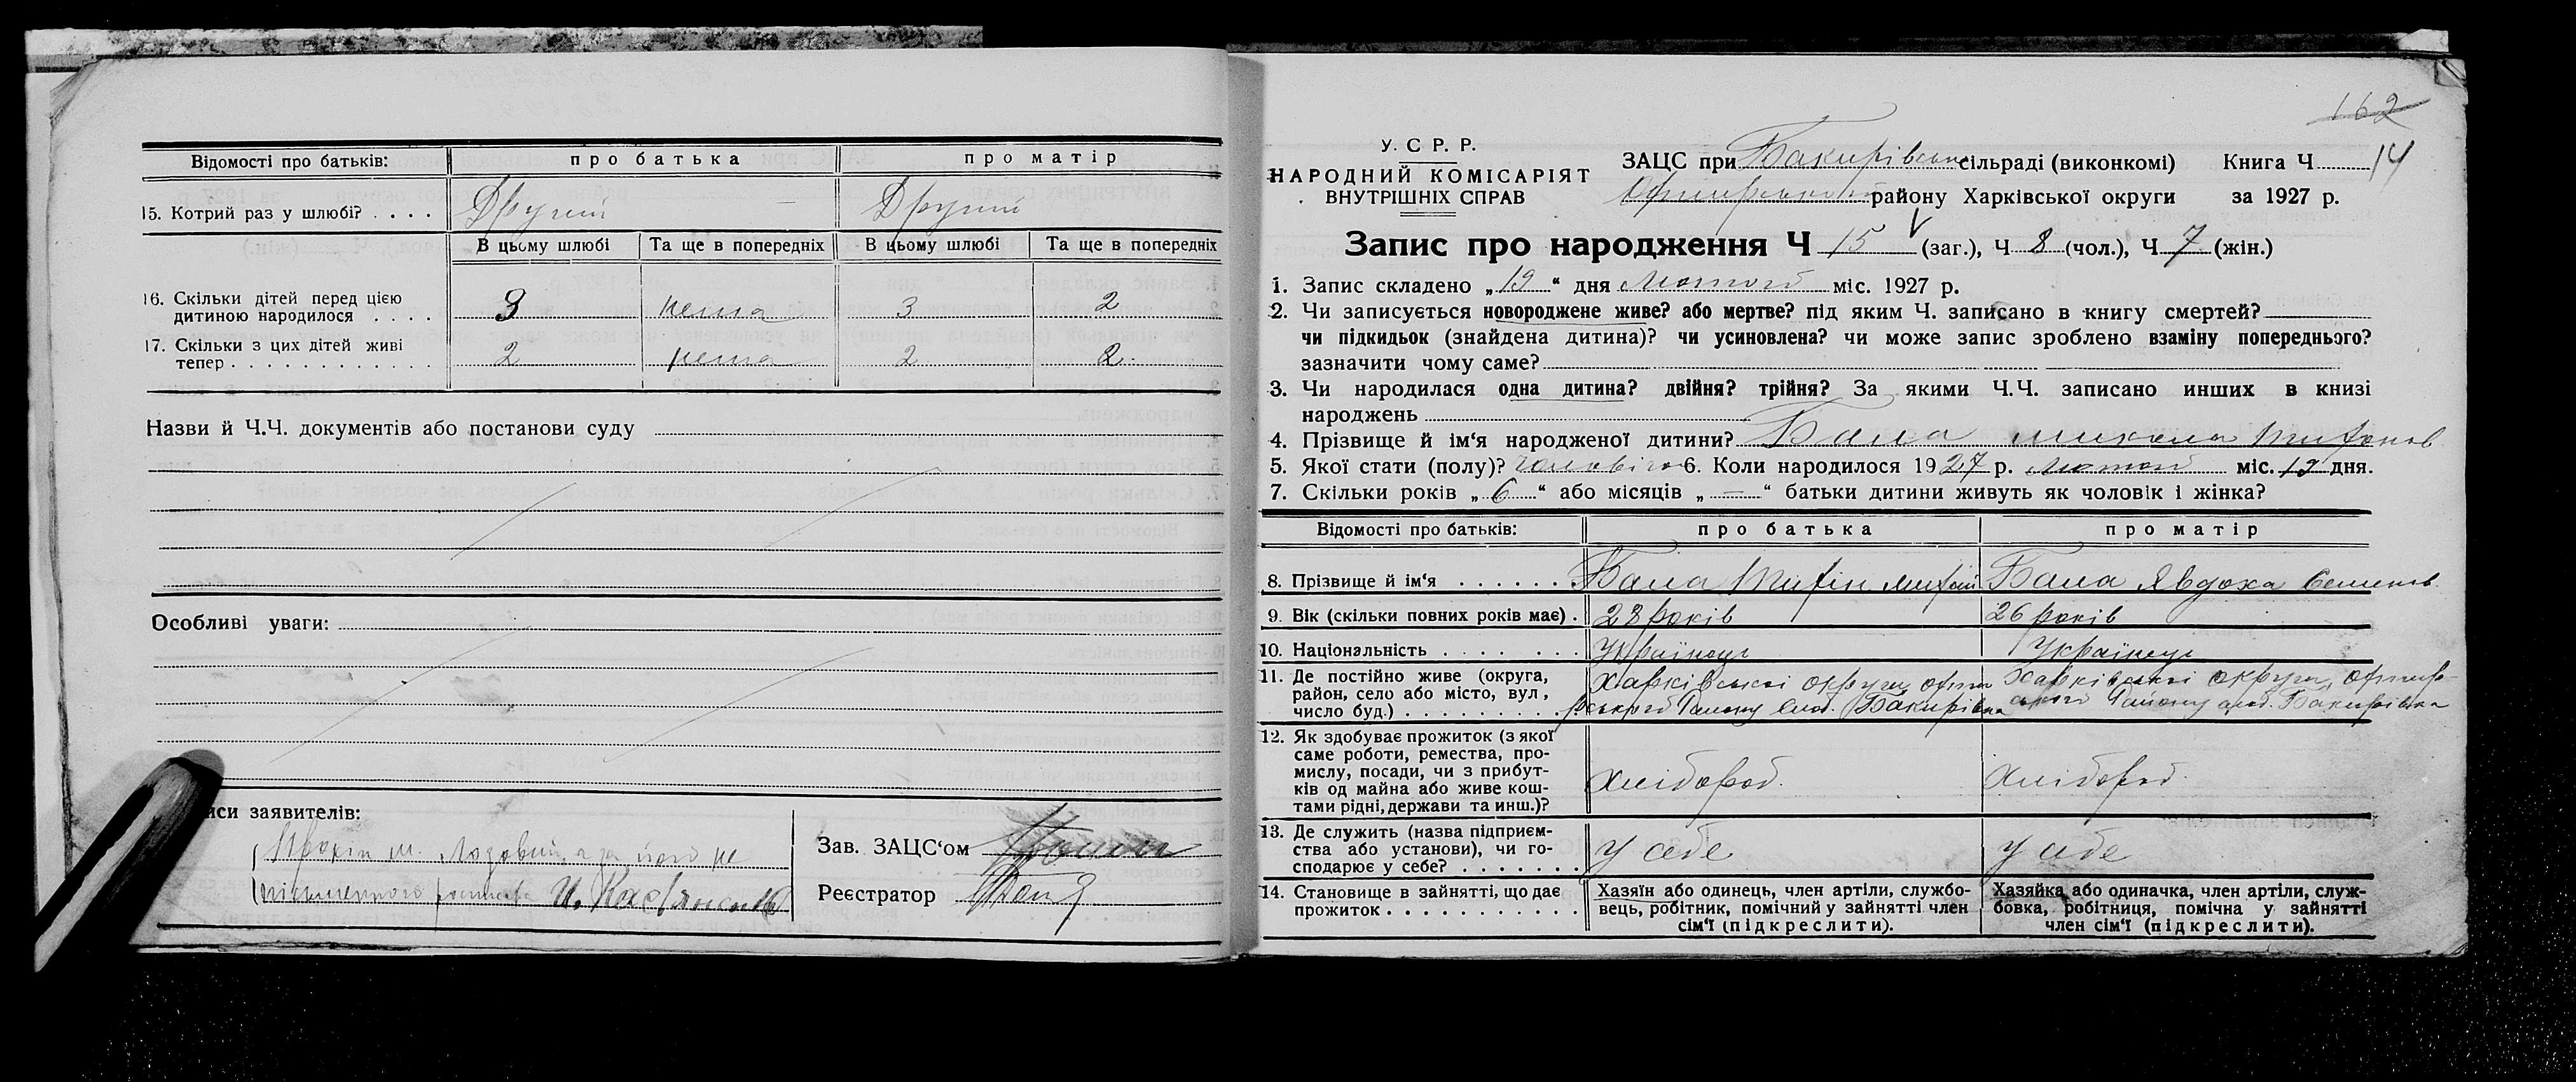 Відомості про батьків: про батька про матір
15. Котрий раз у шлюбі? . . . . Другий Другий
В цьому шлюбі Та ще в попередніх В цьому шлюбі Та ще в попередніх
16. Скільки дітей перед цією
дитиною народилося . . . . 3 нема 3 2
17. Скільки з цих дітей живі
тепер . . . . . . . . . . . . 2 нема 2 2
Назви й Ч.Ч. документів або постанови суду
Особливі уваги:
иси заявителів:
м. Лозовий, а за його не
письменного
Зав. ЗАЦС‘ом
Реєстратор
162
У.С.Р.Р.
НАРОДНИЙ КОМІСАРІЯТ
ВНУТРІШНІХ СПРАВ
ЗАЦС при Бакирівськ сільраді (виконкомі) Книга Ч 14
району Харківської округи за 1927 р.
Запис про народження Ч 15 (заг.), Ч 8 (чол.), Ч 7 (жін.)
1. Запис складено „19“ дня Лютого міс. 1927 р.
2. Чи записується новороджене живе? або мертве? під яким Ч. записано в книгу смертей?
чи підкидьок (знайдена дитина)? чи усиновлена? чи може запис зроблено взаміну попереднього?
зазначити чому саме?
3. Чи народилася одна дитина? двійня? трійня? За якими Ч.Ч. записано инших в книзі
народжень
4. Прізвище й ім‘я народженої дитини? Бала Микола
5. Якої стати (полу)? чоловічо 6. Коли народилося 1927 р. Лютого міс. 12 дня.
7. Скільки років „6“ або місяців „—“ батьки дитини живуть як чоловік і жінка?
Відомості про батьків: про батька про матір
8. Прізвище й ім‘я . . . . . . Бала Бала Явдоха Семенов
9. Вік (скільки повних років має) . 28 років 26 років
10. Національність . . . . . . . Українець Українець
11. Де постійно живе (округа, Харківської округи Харківської округи
район, село або місто, вул., рського Району слоб. Бакирівка ського Району слоб. Бакирівка
число буд.) . . . . . . . . . .
12. Як здобуває прожиток (з якої
саме роботи, ремества, про-
мислу, посади, чи з прибут-
ків од майна або живе кош-
тами рідні, держави та инш.)?
Хлібороб. Хлібороб.
13. Де служить (назва підприєм-
ства або установи), чи го-
сподарює у себе? . . . . . . .
У себе У себе
14. Становище в зайнятті, що дає
прожиток . . . . . . . . . . . .
Хазяїн або одинець, член артіли, службо-
вець, робітник, помічний у зайнятті член
сім‘ї (підкреслити).
Хазяйка або одиначка, член артіли, служ-
бовка, робітниця, помічна у зайнятті
член сім‘ї (підкреслити).